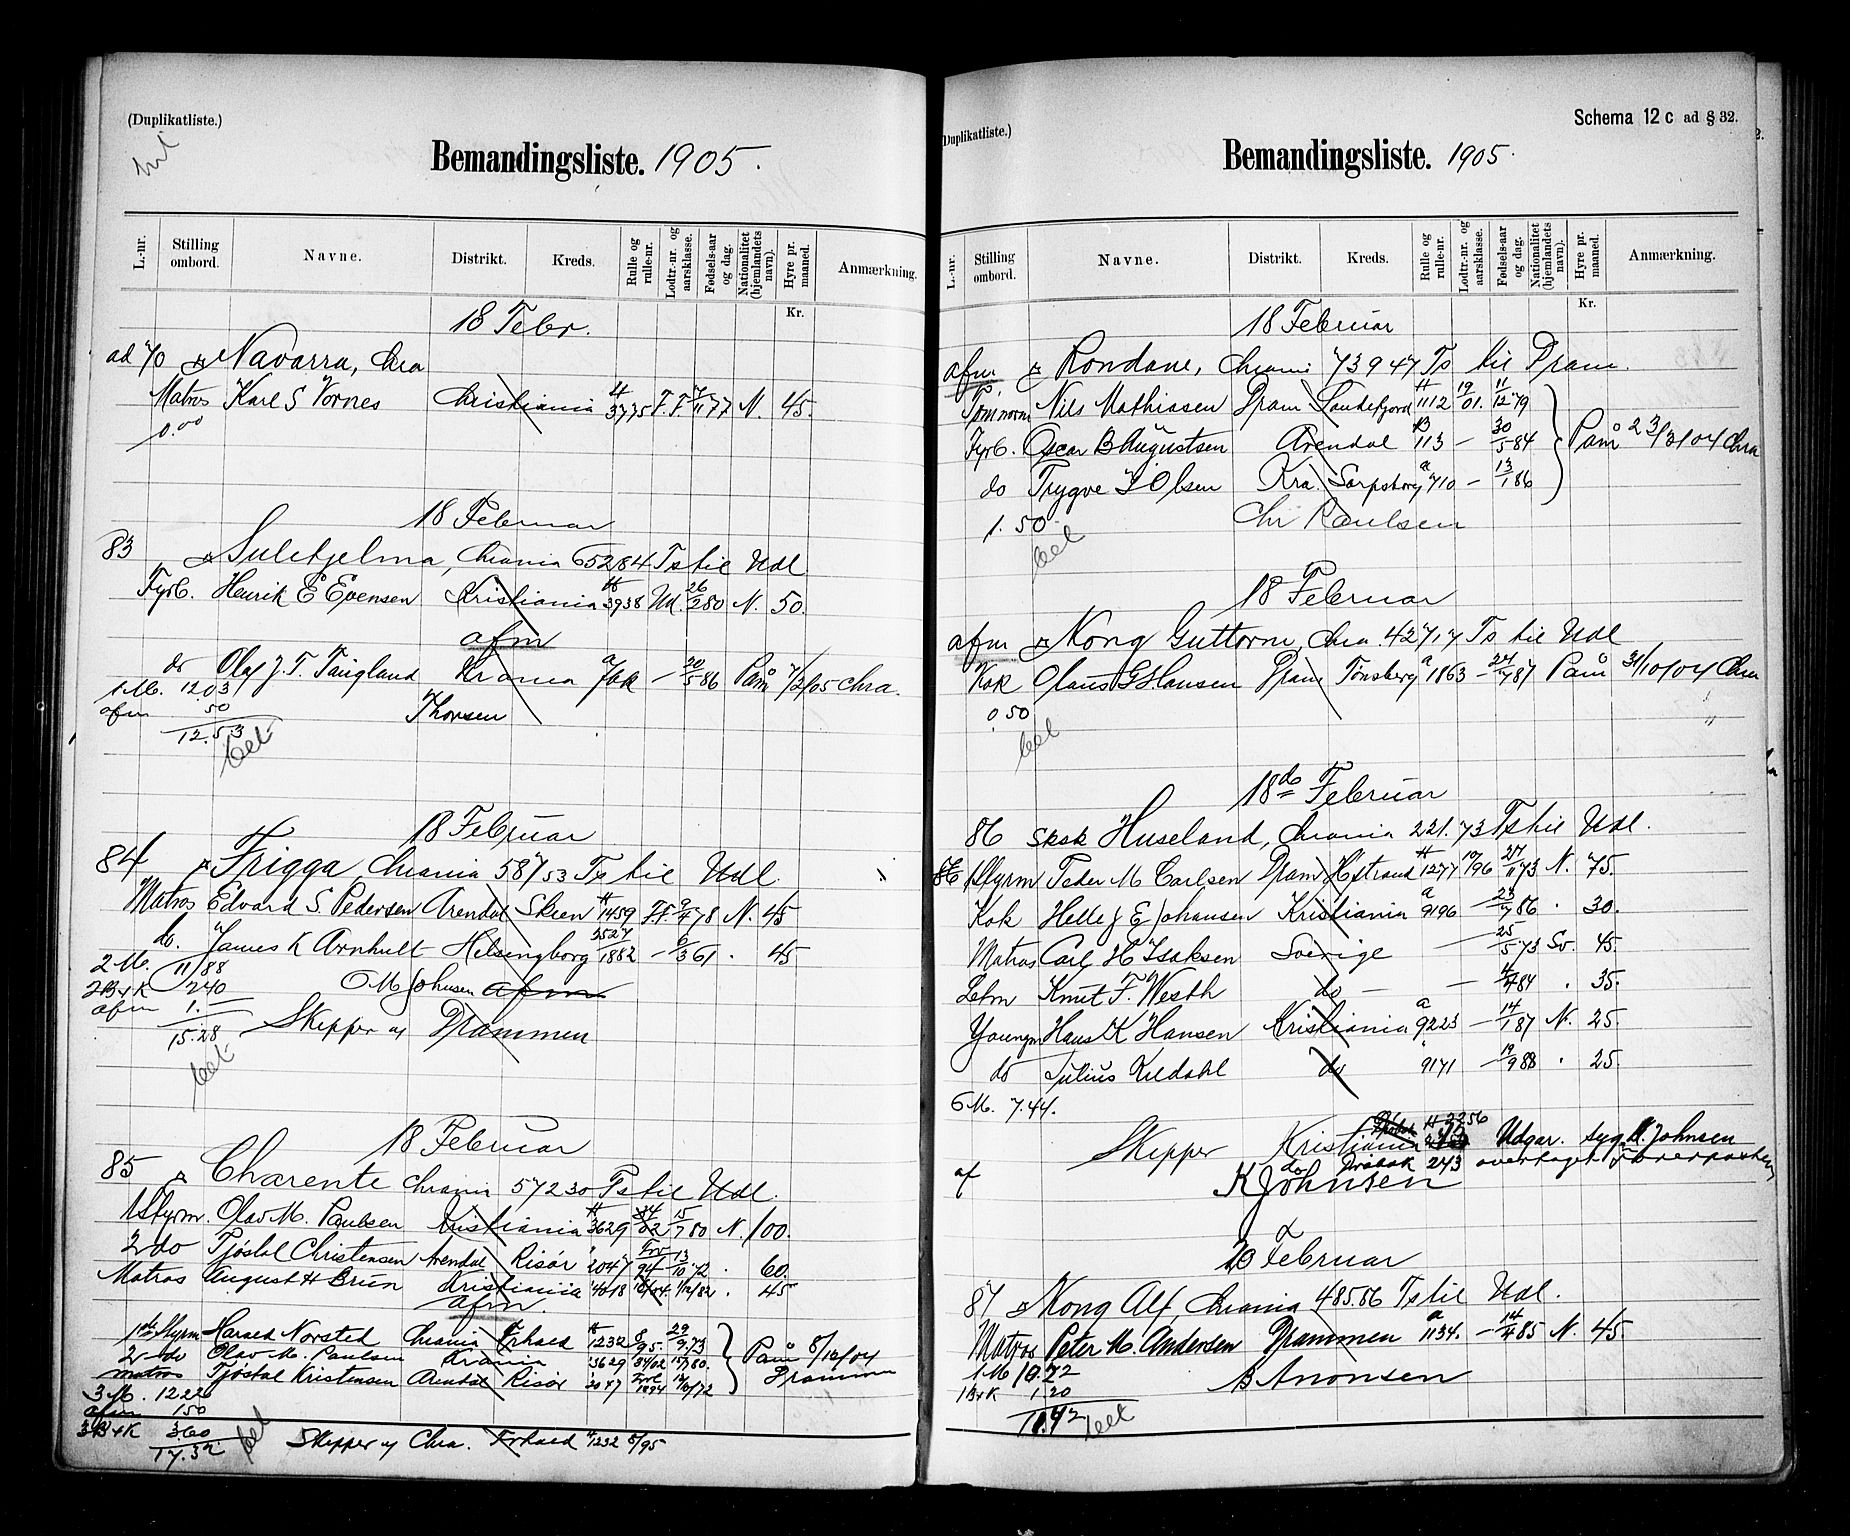 (Duplikatliste.)
Bemandingsliste. 1905.
L.-nr. Stilling ombord. Navne. Distrikt. Kreds. Rulle og rulle-nr. Lodtr.-nr. og aarsklasse. Fødsels-aar og dag. Nationalitet (hjemlandets navn). Hyre pr. maaned. Anmærkning.
Kr.
18 Febr.
ad 70 Navarra, Chra
Matros Karl S Vornes Christiania 3775 F.F. 7/11 77 N. 45.
0.00
18 Februar
83 Sulitjelma, Chrania 652 84 Ts til Udl
Fyrb. Henrik E Evensen Kristiania 3938 Ud. 26/2 80 N. 50.
afm
do Olaf J. F. Taugland Krania 20/5 86 Paam 7/2/05 Chra.
1 M. 12.03
afm 50 Thorsen
12.53
bet
18 Februar
84 Frigga, Chrania 587 53 Ts til Udl.
Matros Edvard S. Pedersen Arendal Skien 1459 F.F. 9/4 78 N. 45
do. James K Arnhult Helsingborg 2527 1882 – 9/3 61 . 45
2 M. 11/88
2B+K 240 O M Johnsen afm
afm 1.–
15.28 Skipper af Drammen
bet
18 Februar
85 Charente Chrania 572 30 Ts til Udl.
1 Styrm. Olav M. Paulsen Kristiania 3629 34/02 15/7 80 N. 100.
2 do Tjøstol Christensen Arendal Risør 2047 Frv 94 13/10 72 . 60.
Matros August H Brun Kristiania 4018 1/12/82 . 45
afm.
1ste Styrm Harald Norsted Chrania 1232 8/95. 29/9 73
2 do Olav M. Paulsen Krania 3629 34/02 15/7 80. Paam 8/10/04
matros Tjøstol Kristensen Arendal Risør 2047 1894 13/10/72 Drammen
3 M. 12.22
afm 150
3B+K 3.60
17.32 bet Skipper af Chra. 1232 8/95
(Duplikatliste.)
Schema 12 c ad § 32.
Bemandingsliste. 1905.
L.-nr. Stilling ombord. Navne. Distrikt. Kreds. Rulle og rulle-nr. Lodtr.-nr. og aarsklasse. Fødsels-aar og dag. Nationalitet (hjemlandets navn). Hyre pr. maaned. Anmærkning.
Kr.
18 Februar
afm Rondane, Chrania 739 47 Ts til Dram.
Tømmerm Nils Mathiasen Dram Sandefjord 1112 19/01. 11/12 79
Fyrb. Oscar B Augustsen Arendal 113 – 30/5 84 Paam 23/3/04 Chra
do Trygve J Olsen Kra. Sarpsborg 710 – 13/1 86
1.50 Chr Paulsen
bet
18 Februar
afm Kong Guttorm, Chra. 427,17 Ts til Udl
Kok Olaus G Hansen Dram Tønsberg a 1863 – 24/7 87 Paam 31/10/04 Chra
0.50
bet
18 do Februar
86 Sksk Huseland, Chrania 221.73 Ts til Udl.
86 1 Styrm Peder M Carlsen Dram H,strand 1277 10/96 27/11 73 N. 75.
Kok Helle J E Johansen Kristiania a 9196 – 23/7 86 . 30.
Matros Carl H Isaksen Sverige – 25/5 73 Sv. 45.
Letm Knut F. Westh do – – 4/4 84 . 35.
Youngm Hans K Hansen Kristiania a 9223 – 14/1 87 N. 25.
do Julius Kildahl do 9171 – 19/9 88 . 25.
6 M. 7.44.
Skipper Kristiania Udgår. syg. K. Johnsen
af do Drøbak 243 overtaget Førerposten
K Johnsen
20 Februar
87 Kong Alf, Chrania 485.86 Ts til Udl.
Matros Peter M. Andersen Drammen a 1134. – 14/4 85 N. 45
1 M 9.22 B Anonsen
1B+K 1.20
10.42 bet